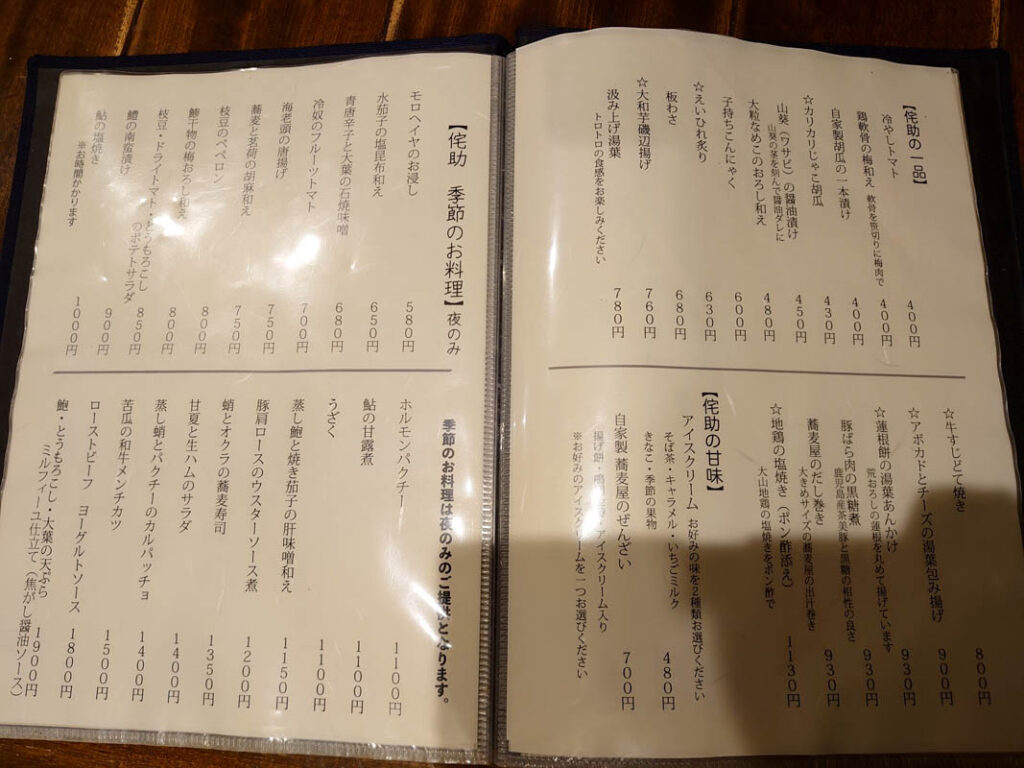 【侘助の一品】
冷やしトマト 400円
鶏軟骨の梅和え 軟骨を笹切りに梅肉で 400円
自家製胡瓜の一本漬け 400円
☆カリカリじゃこ胡瓜 430円
山葵（ワサビ）の醤油漬け 450円
山葵の茎を刻んで醤油ダレに
大粒なめこのおろし和え 480円
子持ちこんにゃく 600円
☆えいひれ炙り 630円
板わさ 680円
☆大和芋磯辺揚げ 760円
汲み上げ湯葉 780円
トロトロの食感をお楽しみください
☆牛すじどて焼き 800円
☆アボカドとチーズの湯葉包み揚げ 900円
☆蓮根餅の湯葉あんかけ 930円
荒おろしの蓮根を丸めて揚げています
豚ばら肉の黒糖煮 930円
鹿児島産茶美豚と黒糖の相性の良さ
蕎麦屋のだし巻き 930円
大きめサイズの蕎麦屋の出汁巻き
☆地鶏の塩焼き（ポン酢添え） 1130円
大山地鶏の塩焼きをポン酢で
【侘助の甘味】
アイスクリーム お好みの味を2種類お選びください
そば茶・キャラメル・いちごミルク 480円
きなこ・季節の果物
自家製 蕎麦屋のぜんざい 700円
揚げ餅・アイスクリーム入り
※お好みのアイスクリームを一つお選びください
【侘助 季節のお料理】夜のみ
モロヘイヤのお浸し 580円
水茄子の塩昆布和え 650円
青唐辛子と大葉の石焼味噌 680円
冷奴のフルーツトマト 700円
海老頭の唐揚げ 750円
蕎麦と茗荷の胡麻和え 750円
枝豆のペペロン 800円
鯵干物の梅おろし和え 800円
枝豆・ドライトマト・とうもろこし
のポテトサラダ 850円
鱧の南蛮漬け 900円
鮎の塩焼き 1000円
※お時間かかります
季節のお料理は夜のみのご提供となります。
ホルモンパクチー 1100円
鮎の甘露煮 1100円
うざく 1100円
蒸し鮑と焼き茄子の肝味噌和え 1150円
豚肩ロースのウスターソース煮 1200円
蛸とオクラの蕎麦寿司 1350円
甘夏と生ハムのサラダ 1400円
蒸し蛸とパクチーのカルパッチョ 1400円
苦瓜の和牛メンチカツ 1500円
ローストビーフ ヨーグルトソース 1800円
鮑・とうもろこし・大葉の天ぷら
ミルフィーユ仕立て（焦がし醤油ソース） 1900円